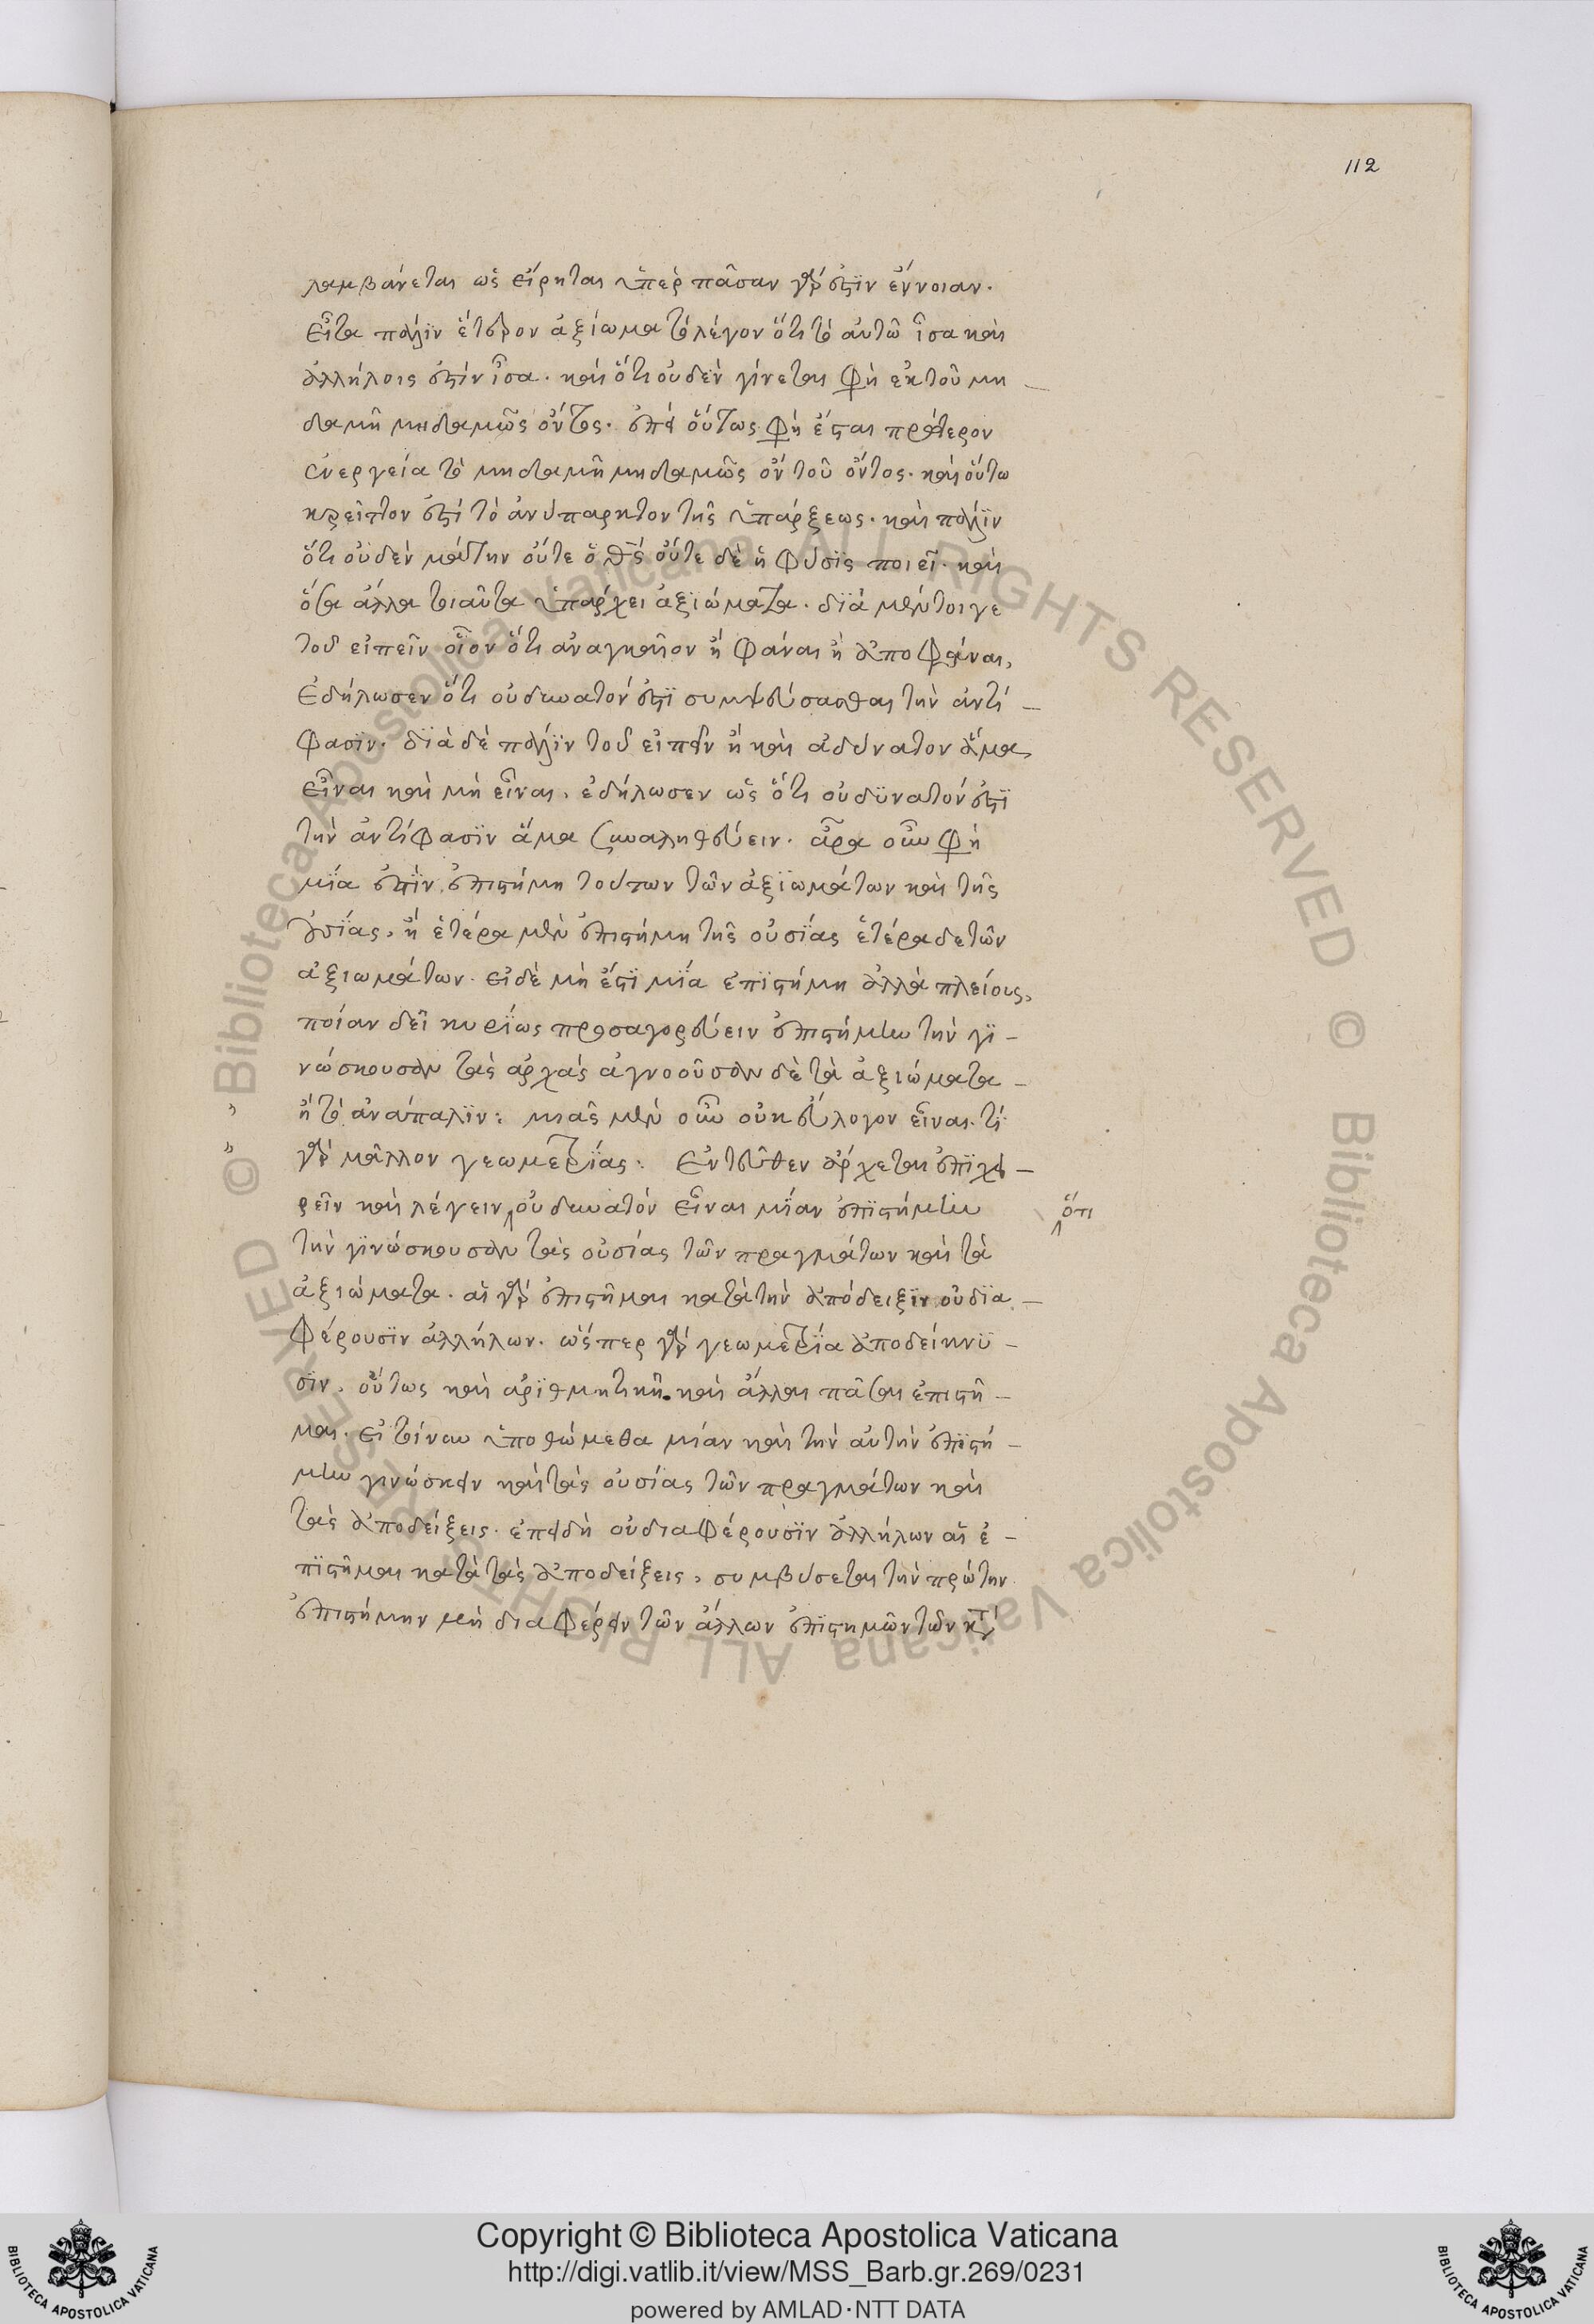 112
λαμβάνεται ὡς εἴρηται ὑπὲρ πᾶσαν γάρ ἐστιν ἔννοιαν.
εἶτα πάλιν ἕτερον ἀξίωμα τὸ λέγον ὅτι τὰ αὐτῶ ἴσα καὶ
ἀλλήλοις ἐστὶν ἴσα. καὶ ὅτι οὐδὲν γίνεται φη ἐκ τοῦ μη
δαμῆ μηδαμῶς ὄντος. ἐπεὶ οὕτως φη ἔσται πρότερον
ἐνεργεία τὸ μηδαμῆ μηδαμῶς ὂν τοῦ ὄντος. καὶ οὕτω
κρεῖττον ἐστὶ τὸ ἀνύπαρκτον τῆς ὑπάρξεως. καὶ πάλιν
ὅτι οὐδὲν μάτην οὔτε ὁ θς οὔτε δὲ ἡ φύσις ποιεῖ. καὶ
ὅσα ἄλλα τοιαῦτα ὑπάρχει ἀξιώματα. διὰ μέντοιγε
τοῦ εἰπεῖν οἷον ὅτι ἀναγκαῖον ἢ φάναι ἢ ἀποφάναι,
ἐδήλωσεν ὅτι οὐ δυνατόν ἐστι συμψεύσασθαι τὴν ἀντί
φασιν. διὰ δὲ πάλιν τοῦ εἰπεῖν ἢ καὶ ἀδύνατον ἅμα
εἶναι καὶ μὴ εἶναι, ἐδήλωσεν ὡς ὅτι οὐ δυνατόν ἐστι
τὴν ἀντίφασιν ἅμα συναληθεύειν. ἆρα οὖν φη
μία ἐστὶν ἐπιστήμη τούτων τῶν ἀξιωμάτων καὶ τῆς
οὐσίας, ἢ ἑτέρα μὲν ἐπιστήμη τῆς οὐσίας ἑτέρα δε τῶν
ἀξιωμάτων. εἰ δὲ μὴ ἔστι μία ἐπιστήμη ἀλλὰ πλείους,
ποίαν δεῖ κυρίως προσαγορεύειν ἐπιστήμην τὴν γι-
νώσκουσαν τὰς ἀρχὰς ἀγνοοῦσαν δὲ τὰ ἀξιώματα -
ἢ τὸ ἀνάπαλιν: μιᾶς μὲν οὖν οὐκ εὔλογον εἶναι. τί
γὰρ μᾶλλον γεωμετρίας: Ἐντεῦθεν ἄρχεται ἐπιχει-
ρεῖν καὶ λέγειν οὐ δυνατὸν εἶναι μίαν ἐπιστήμην
ὅτι
τὴν γινώσκουσαν τὰς οὐσίας τῶν πραγμάτων καὶ τὰ
ἀξιώματα. αἱ γὰρ ἐπιστῆμαι κατὰ τὴν ἀπόδειξιν οὐ δια-
φέρουσιν ἀλλήλων. ὥσπερ γὰρ γεωμετρία ἀποδείκνυ-
σιν, οὕτως καὶ ἀριθμητικὴ καὶ ἄλλαι πᾶσαι ἐπιστῆ-
μαι. εἰ τοίνυν ὑποθώμεθα μίαν καὶ τὴν αὐτὴν ἐπιστή-
μην γινώσκειν καὶ τὰς οὐσίας τῶν πραγμάτων καὶ
τὰς ἀποδείξεις. ἐπειδὴ οὐ διαφέρουσιν ἀλλήλων αἱ ἐ-
πιστῆμαι κατὰ τὰς ἀποδείξεις, συμβήσεται τὴν πρώτην
ἐπιστήμην μὴ διαφέρειν τῶν ἄλλων ἐπιστημῶν τῶν κατὰ
Copyright © Biblioteca Apostolica Vaticana
http://digi.vatlib.it/view/MSS_Barb.gr.269/0231
powered by AMLAD·NTT DATA